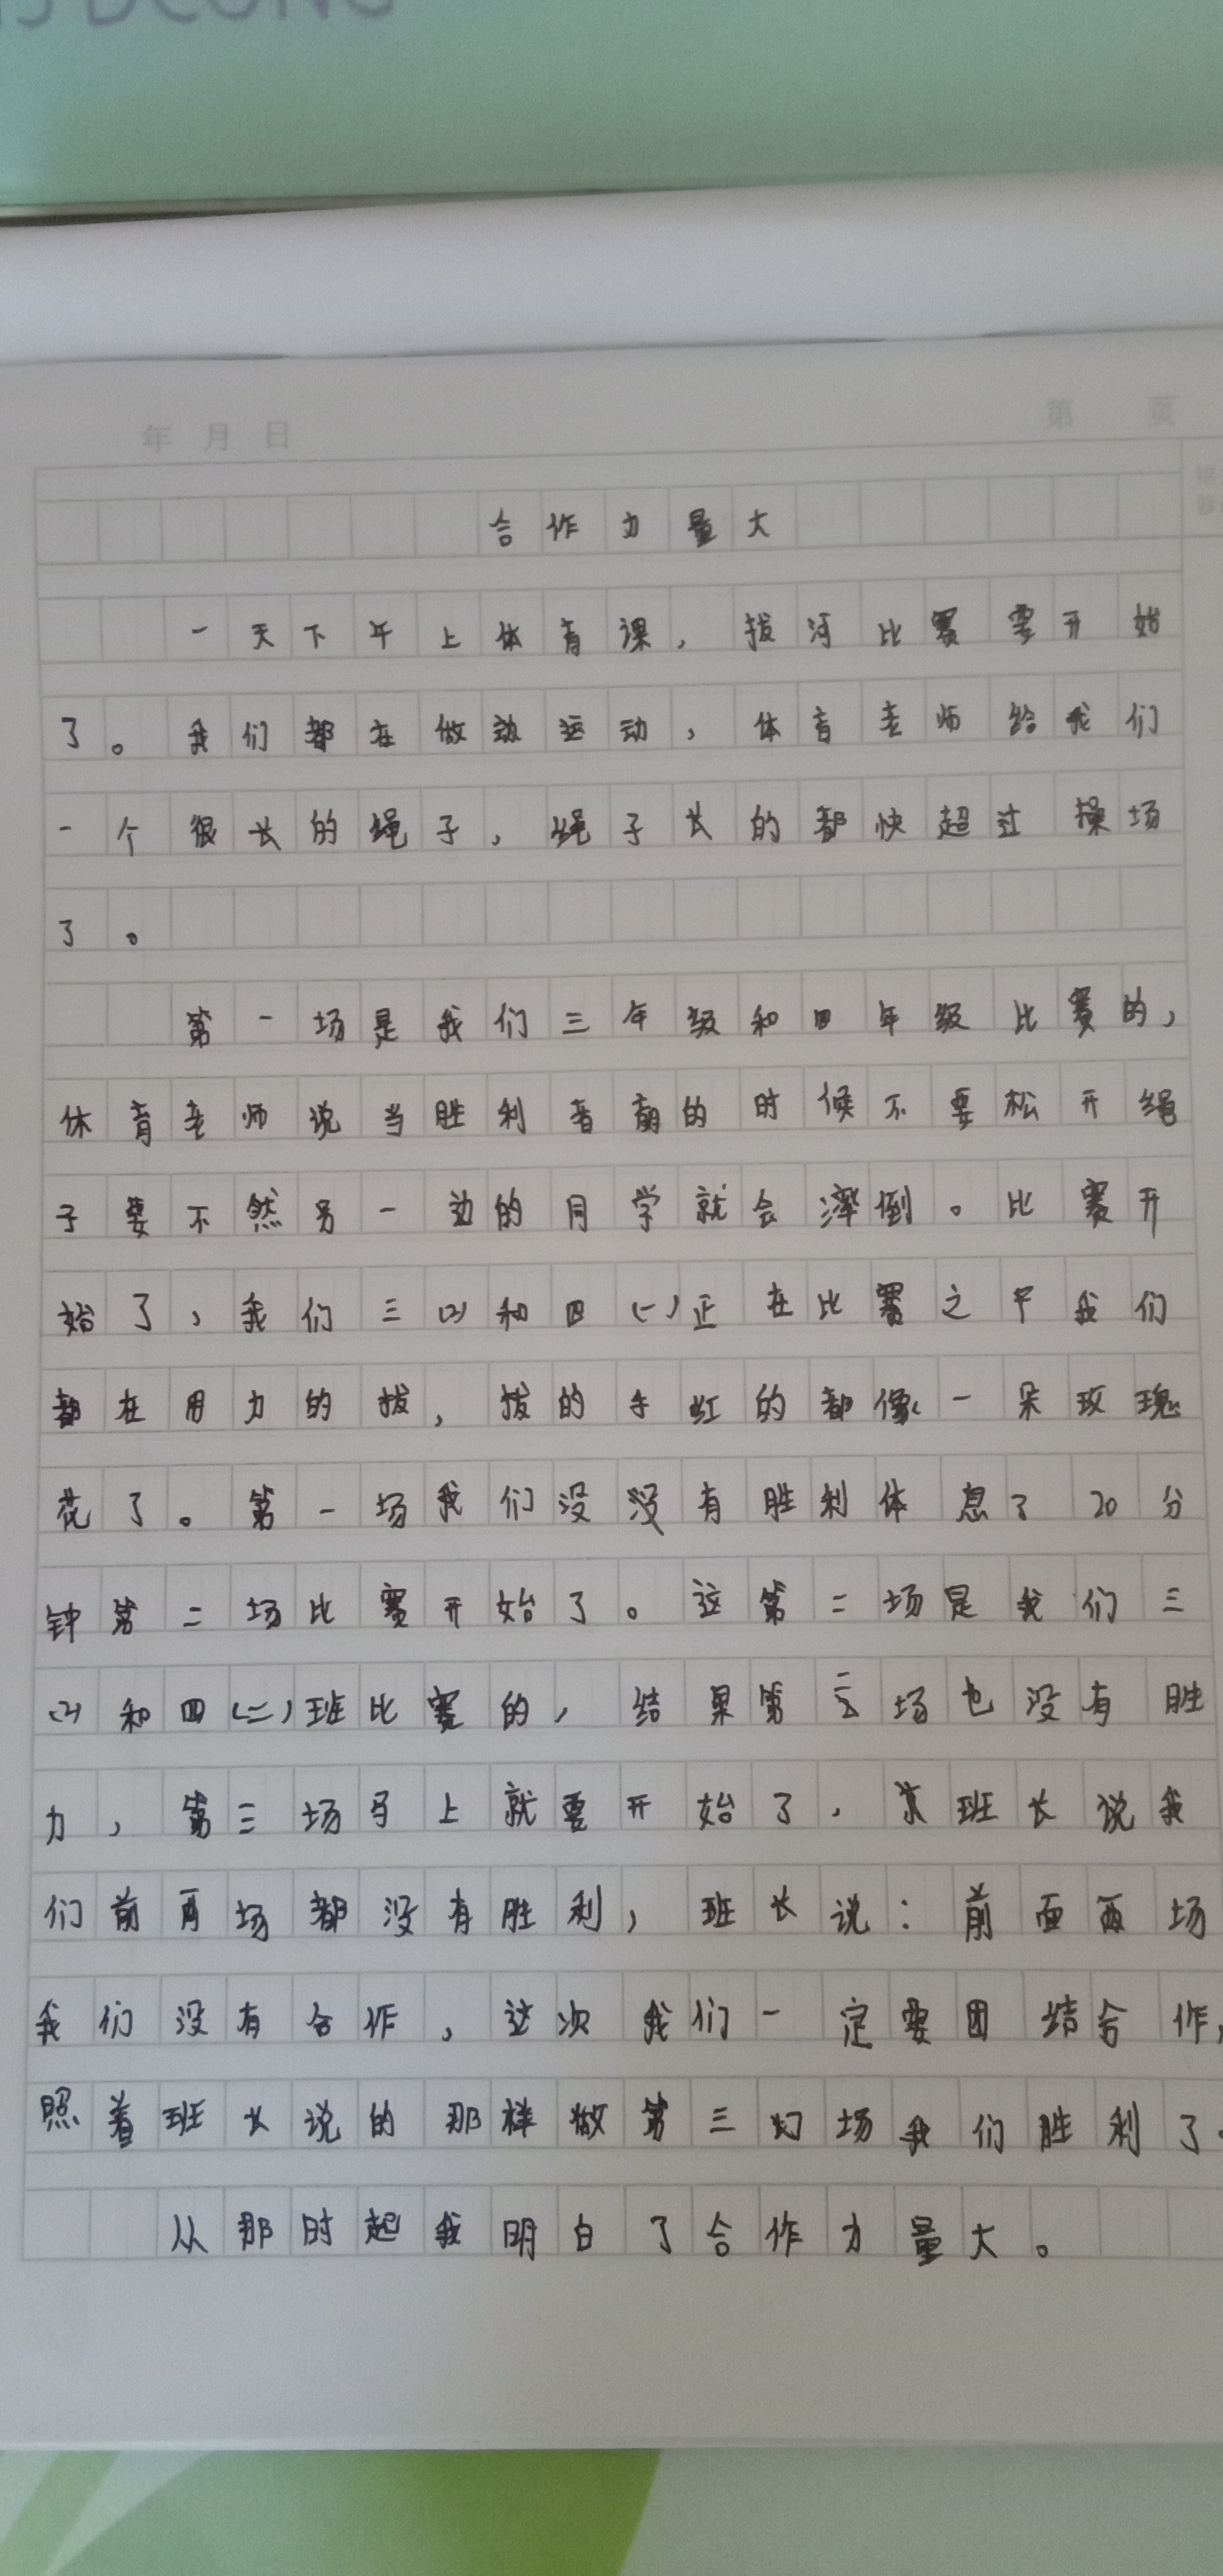 合作力量大
一天下午上体育课，拔河比赛要开始
了。我们都在做运动，体育老师给我们
一个很长的绳子，绳子长的都快超过操场
了。
第一场是我们三年级和四年级比赛的，
体育老师说当胜利者的时候不要松开绳
子要不然另一边的同学就会摔倒。比赛开
始了，我们三(2)和四(一)正在比赛之中我们
都在用力的拔，拔的手红的都像一朵玫瑰
花了。第一场我们没没有胜利体息了20分
钟第二场比赛开始了。这第二场是我们三
(2)和四(二)班比赛的，结果第二场也没有胜
力，第三场马上就要开始了，班长说我
们前两场都没有胜利，班长说：前面两场
我们没有合作，这次我们一定要团结合作，
照着班长说的那样做第三场我们胜利了
从那时起我明白了合作力量大。